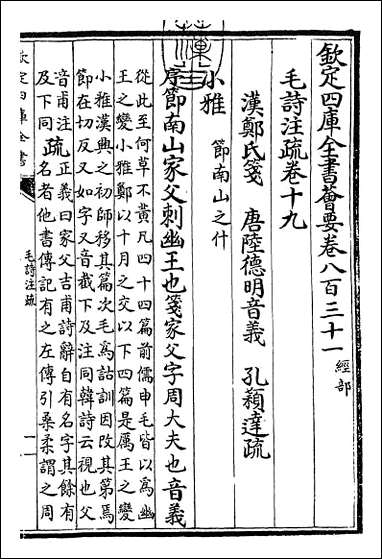 欽定四庫全書薈要卷八百三十一 經部
毛詩注疏卷十九
漢鄭氏箋 唐陸德明音義 孔穎達疏
小雅 節南山之什
序節南山家父刺幽王也箋家父字周大夫也音義
從此至何草不黃凡四十四篇前儒申毛皆以爲幽
王之變小雅鄭以十月之交以下四篇是厲王之變
小雅漢興之初師移其篇次毛爲詁訓因改其第焉
節在切反又如字又音截下及注同韓詩云視也父
音甫注疏正義曰家父吉甫詩辭自有名字其餘有
及下同名者他書傳記有之左傳引桑柔謂之周
欽定四庫全書
毛詩注疏
一